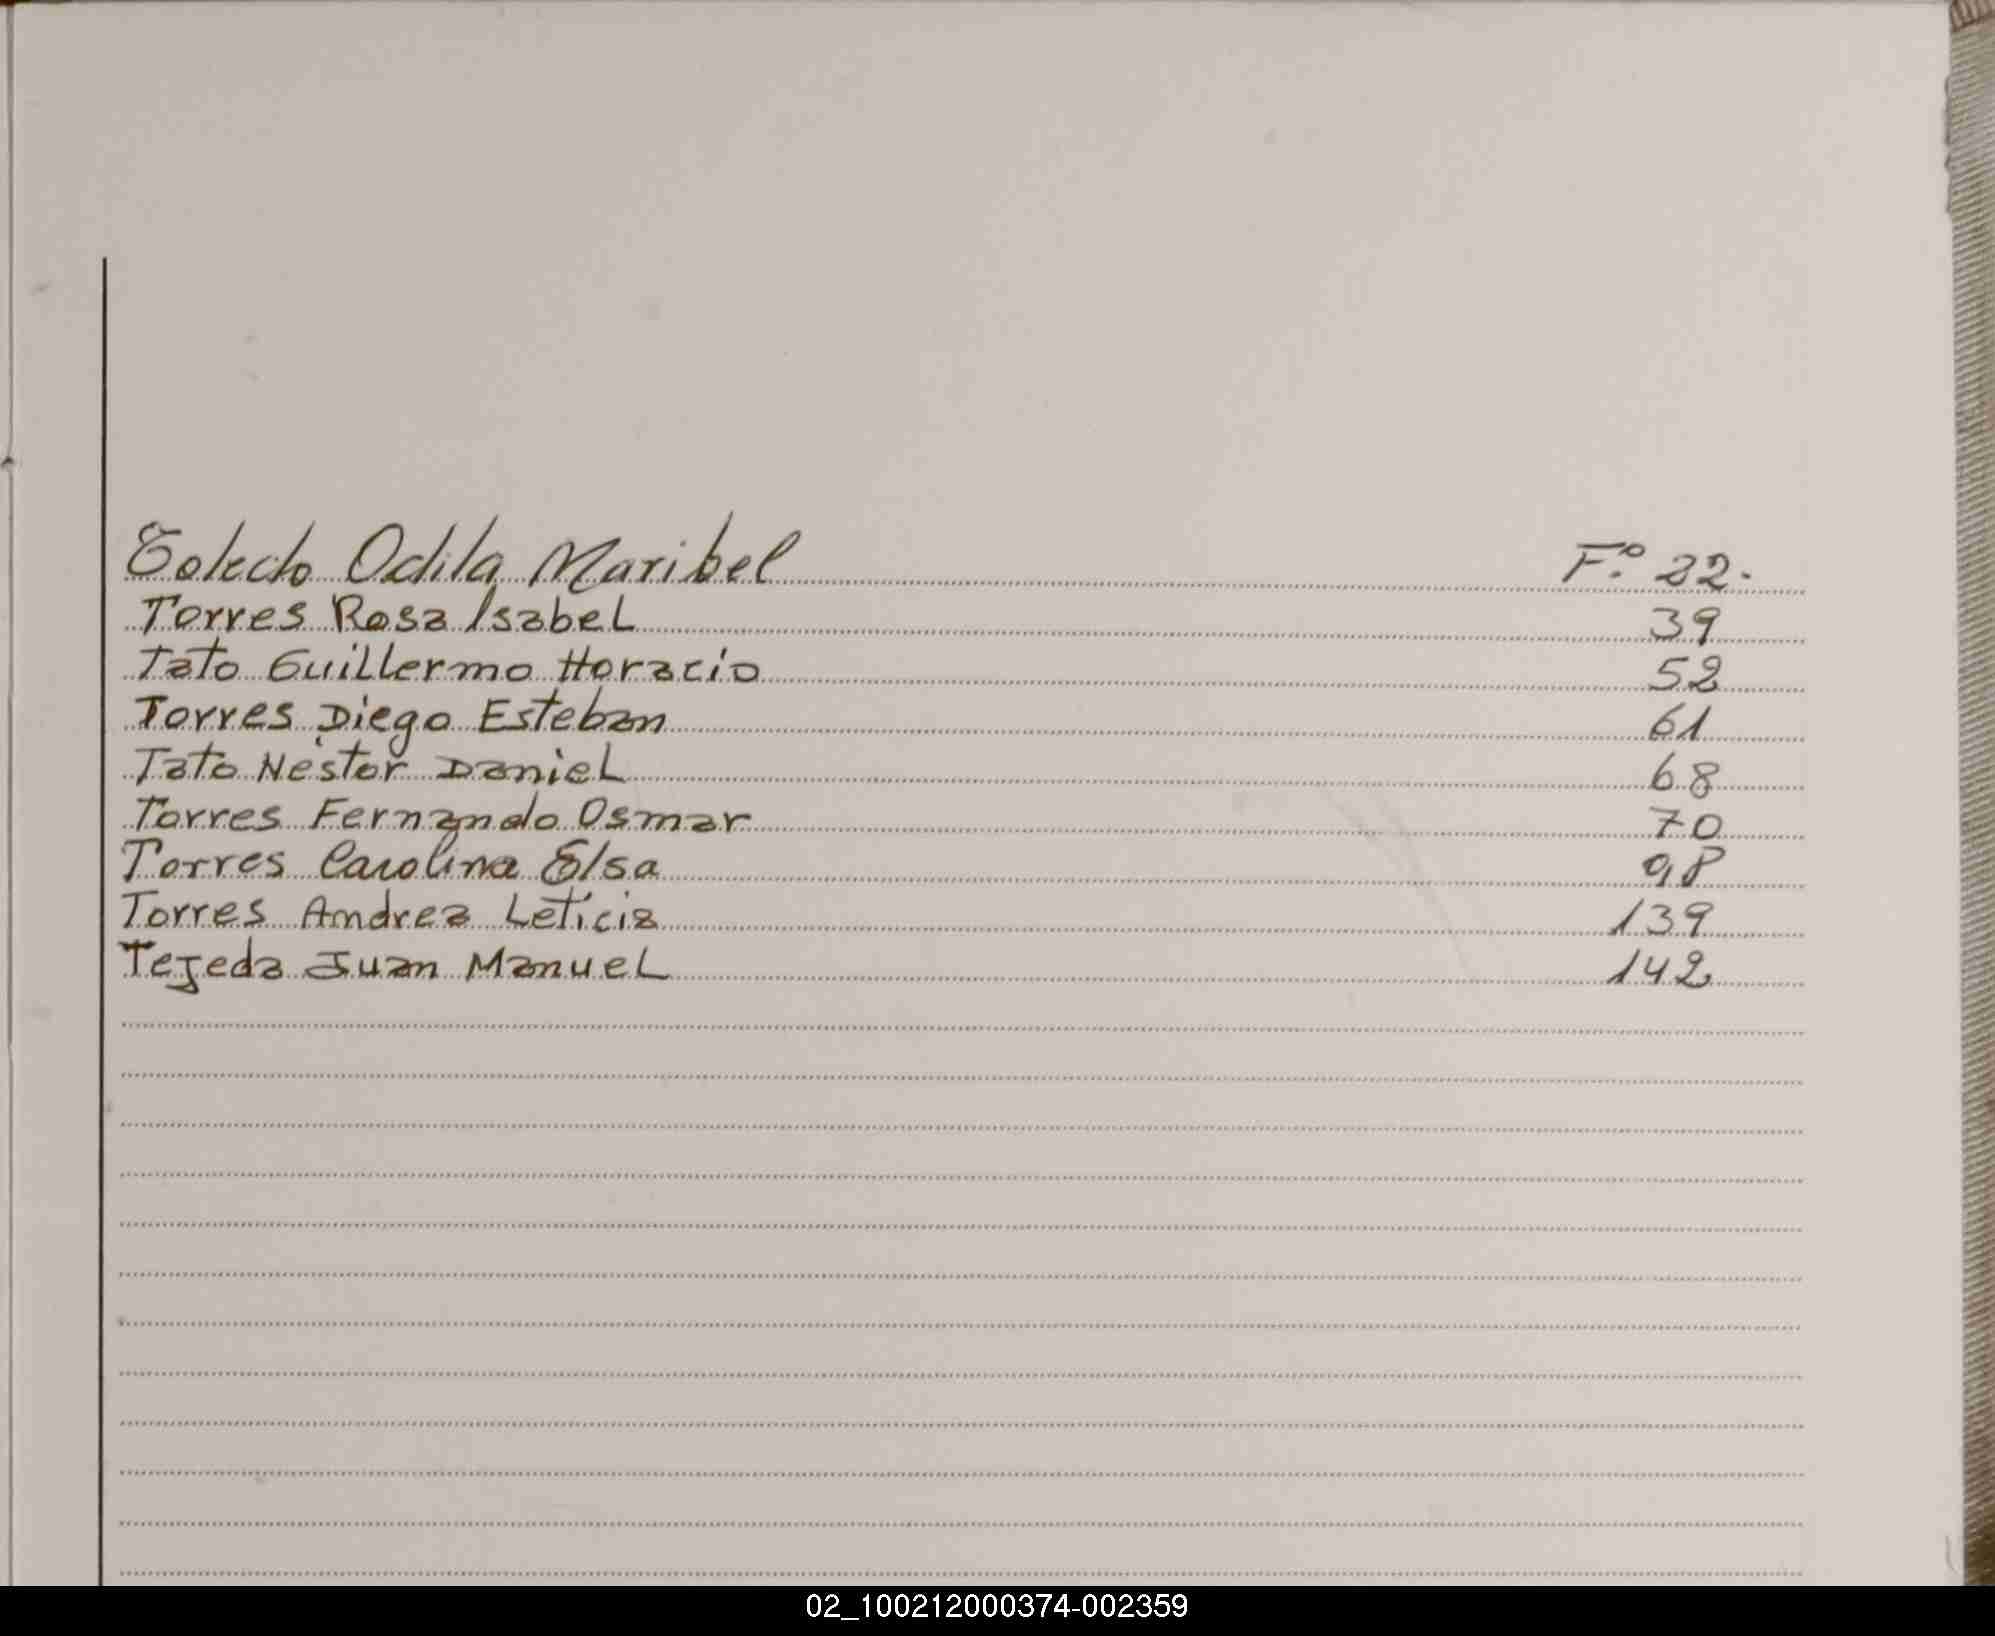 Toledo Odila Maribel F.º 22.
Torres Rosa Isabel 39
Tato Guillermo Horacio 52
Torres Diego Esteban 61
Tato Néstor Daniel 68
Torres Fernando Osmar 70
Torres Carolina Elsa 98
Torres Andrea Leticia 139
Tejeda Juan Manuel 142
02_100212000374-002359